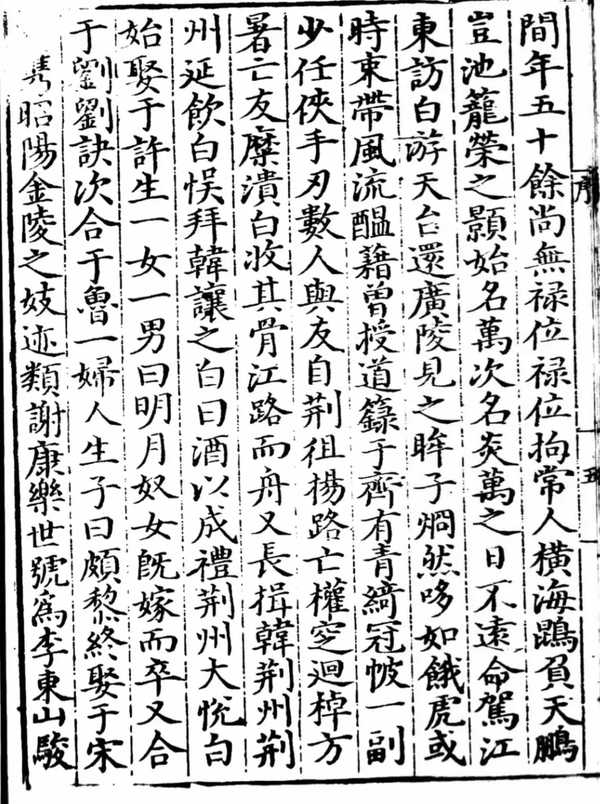 序
五
間年五十餘尚無禄位禄位拘常人橫海鵾負天鵬
豈池籠榮之顥始名萬次名炎萬之日不遠命駕江
東訪白游天台還廣陵見之眸子烱然哆如餓虎或
時束帶風流醖藉曾授道籙于齊有青綺冠帔一副
少任俠手刃數人與友自荆徂楊路亡權窆迴棹方
暑亡友糜潰白收其骨江路而舟又長揖韓荆州荆
州延飲白悞拜韓讓之白曰酒以成禮荆州大悅白
始娶于許生一女一男曰明月奴女既嫁而卒又合
于劉劉訣次合于魯一婦人生子曰頗黎終娶于宋
昭陽金陵之妓迹類謝康樂世號爲李東山駿